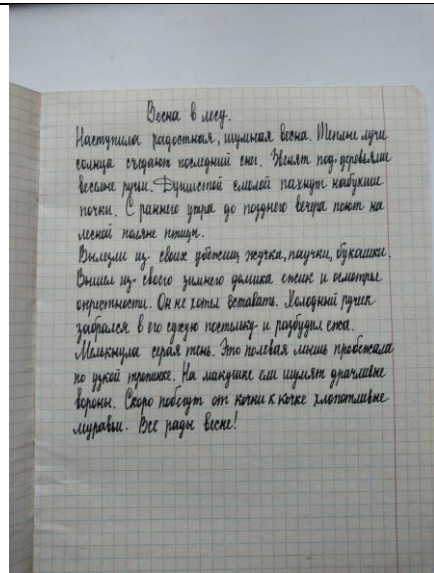 Весна в лесу.
Наступила радостная, шумная весна. Теплые лучи
солнца съедают последний снег. Звенят под-деревьями
веселые ручьи. Душистой смолой пахнут набухшие
почки. С раннего утра до позднего вечера поют на
лесной поляне птицы.
Вылезли из-своих убежищ жучки, паучки, букашки.
Вышел из-своего зимнего домика ежик и осмотрел
окрестности. Он не хотел вставать. Холодный ручеек
забрался в его сухую постельку и разбудил ежа.
Мелькнула серая тень. Это полевая мышь пробежала
по узкой тропинке. На макушке ели шумят драчливые
вороны. Скоро побегут от кочки к кочке хлопотливые
муравьи. Все рады весне!